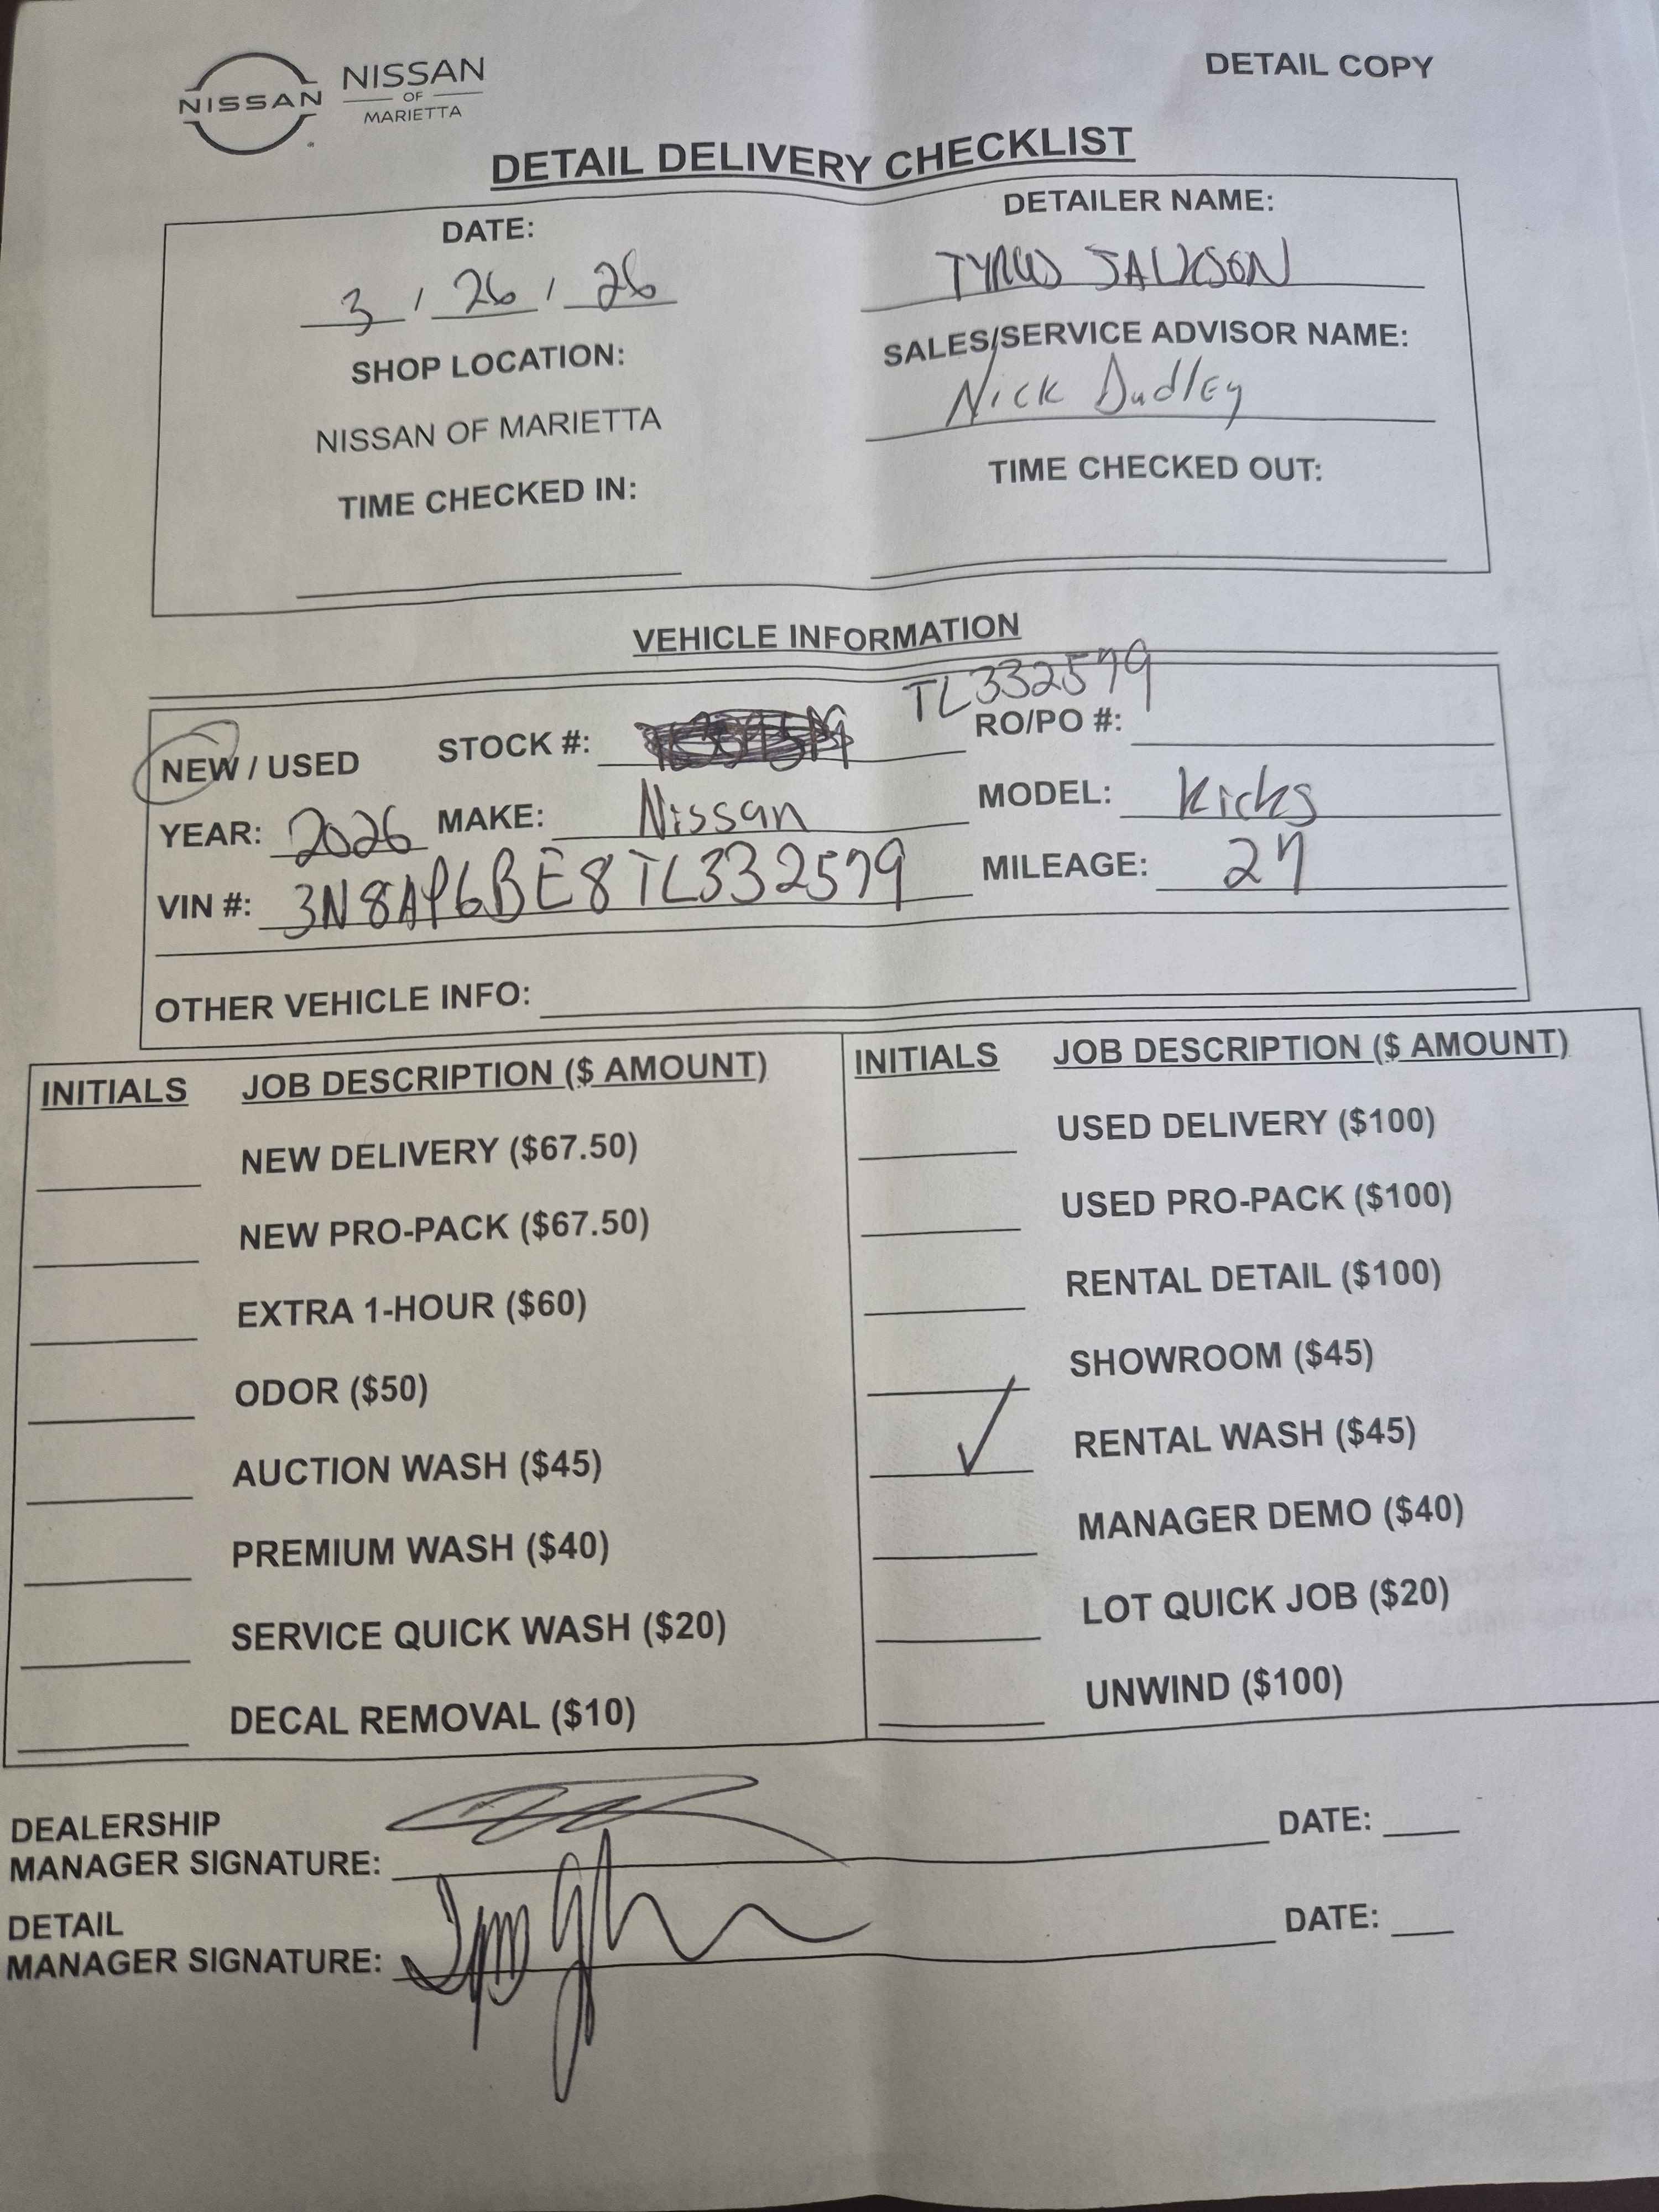 NISSAN NISSAN OF MARIETTA
DETAIL COPY
DETAIL DELIVERY CHECKLIST
DATE:
3 / 26 / 26
SHOP LOCATION:
NISSAN OF MARIETTA
TIME CHECKED IN:
DETAILER NAME:
JACKSON
SALES/SERVICE ADVISOR NAME:
Nick Dudley
TIME CHECKED OUT:
VEHICLE INFORMATION
TL332579
NEW / USED STOCK #: RO/PO #:
YEAR: 2026 MAKE: Nissan MODEL: Kicks
VIN #: 3N8AP6BE8TL332579 MILEAGE: 27
OTHER VEHICLE INFO:
INITIALS JOB DESCRIPTION ($ AMOUNT)
NEW DELIVERY ($67.50)
NEW PRO-PACK ($67.50)
EXTRA 1-HOUR ($60)
ODOR ($50)
AUCTION WASH ($45)
PREMIUM WASH ($40)
SERVICE QUICK WASH ($20)
DECAL REMOVAL ($10)
INITIALS JOB DESCRIPTION ($ AMOUNT)
USED DELIVERY ($100)
USED PRO-PACK ($100)
RENTAL DETAIL ($100)
SHOWROOM ($45)
✓ RENTAL WASH ($45)
MANAGER DEMO ($40)
LOT QUICK JOB ($20)
UNWIND ($100)
DEALERSHIP
MANAGER SIGNATURE: DATE:
DETAIL
MANAGER SIGNATURE: DATE: